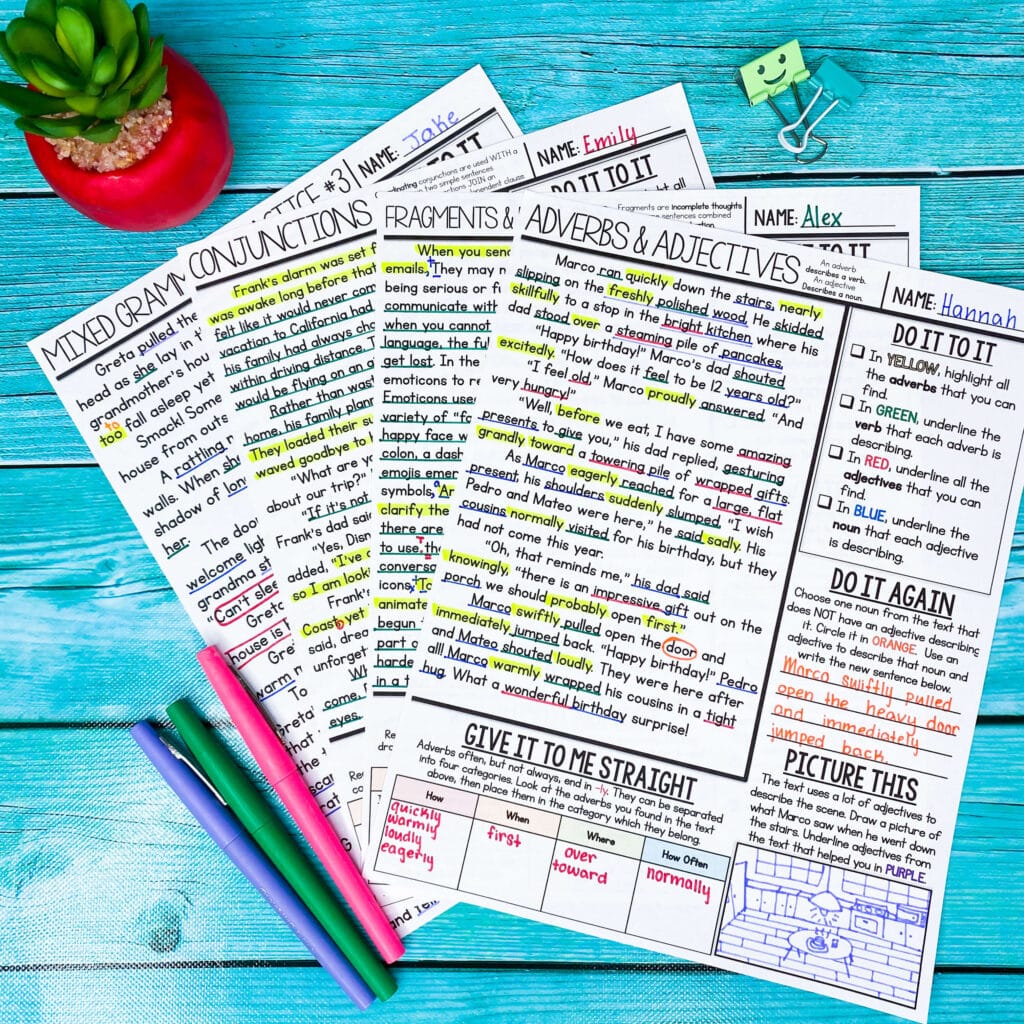 MIXED GRAMM
Greta pulled the
head as she lay in
grandmother's hou
to
too fall asleep yet
Smack! Some
house from outs
A rattling
walls. When sh
shadow of lon
her.
The doo
welcome ligh
grandma st
"Can't slee
Greta
house is h
Greta
warm
To
Greta
that
PRACTICE #3
NAME: Jake
CONJUNCTIONS
Frank's alarm was set f
was awake long before that
felt like it would never com
vacation to California had
his family had always cho
within driving distance. T
would be flying on an
Rather than was
home, his family plan
They loaded their su
waved goodbye to
"What are yo
about our trip?"
"If it's not
Frank's dad said
"Yes, Disn
added, "I've
so I am looki
Frank's
Coast yet
said, drea
unforget
Frank
come,
eyes.
conjunctions are used WITH a
two simple sentences
NAME: Emily
DO IT TO IT
FRAGMENTS &
When you send
emails, They may n
being serious or fu
communicate with
when you cannot
language, the ful
get lost. In the
emoticons to re
Emoticons use
variety of "fa
happy face w
colon, a dash
emojis emer
symbols, Ar
clarify the
there are
to use, th
conversa
icons, To
animate
begun
part o
harde
in it
Fragments are incomplete thoughts
sentences combined
NAME: Alex
ADVERBS & ADJECTIVES
An adverb
describes a verb.
An adjective
Describes a noun.
NAME: Hannah
Marco ran quickly down the stairs, nearly
slipping on the freshly polished wood. He skidded
skillfully to a stop in the bright kitchen where his
dad stood over a steaming pile of pancakes.
"Happy birthday!" Marco's dad shouted
excitedly. "How does it feel to be 12 years old?"
"I feel old," Marco proudly answered. "And
very hungry!"
"Well, before we eat, I have some amazing
presents to give you," his dad replied, gesturing
grandly toward a towering pile of wrapped gifts.
As Marco eagerly reached for a large, flat
present, his shoulders suddenly slumped. "I wish
Pedro and Mateo were here," he said sadly. His
cousins normally visited for his birthday, but they
had not come this year.
"Oh, that reminds me," his dad said
knowingly, "there is an impressive gift out on the
porch we should probably open first."
Marco swiftly pulled open the door and
immediately jumped back. "Happy birthday!" Pedro
and Mateo shouted loudly. They were here after
all! Marco warmly wrapped his cousins in a tight
hug. What a wonderful birthday surprise!
DO IT TO IT
In YELLOW, highlight all
the adverbs that you can
find.
In GREEN, underline the
verb that each adverb is
describing.
In RED, underline all the
adjectives that you can
find.
In BLUE, underline the
noun that each adjective
is describing.
DO IT AGAIN
Choose one noun from the text that
does NOT have an adjective describing
it. Circle it in ORANGE. Use an
adjective to describe that noun and
write the new sentence below.
Marco swiftly pulled
open the heavy door
and immediately
jumped back.
PICTURE THIS
The text uses a lot of adjectives to
describe the scene. Draw a picture of
what Marco saw when he went down
the stairs. Underline adjectives from
the text that helped you in PURPLE.
GIVE IT TO ME STRAIGHT
Adverbs often, but not always, end in -ly. They can be separated
into four categories. Look at the adverbs you found in the text
above, then place them in the category which they belong.
How
quickly
warmly
loudly
eagerly
When
first
Where
over
toward
How Often
normally